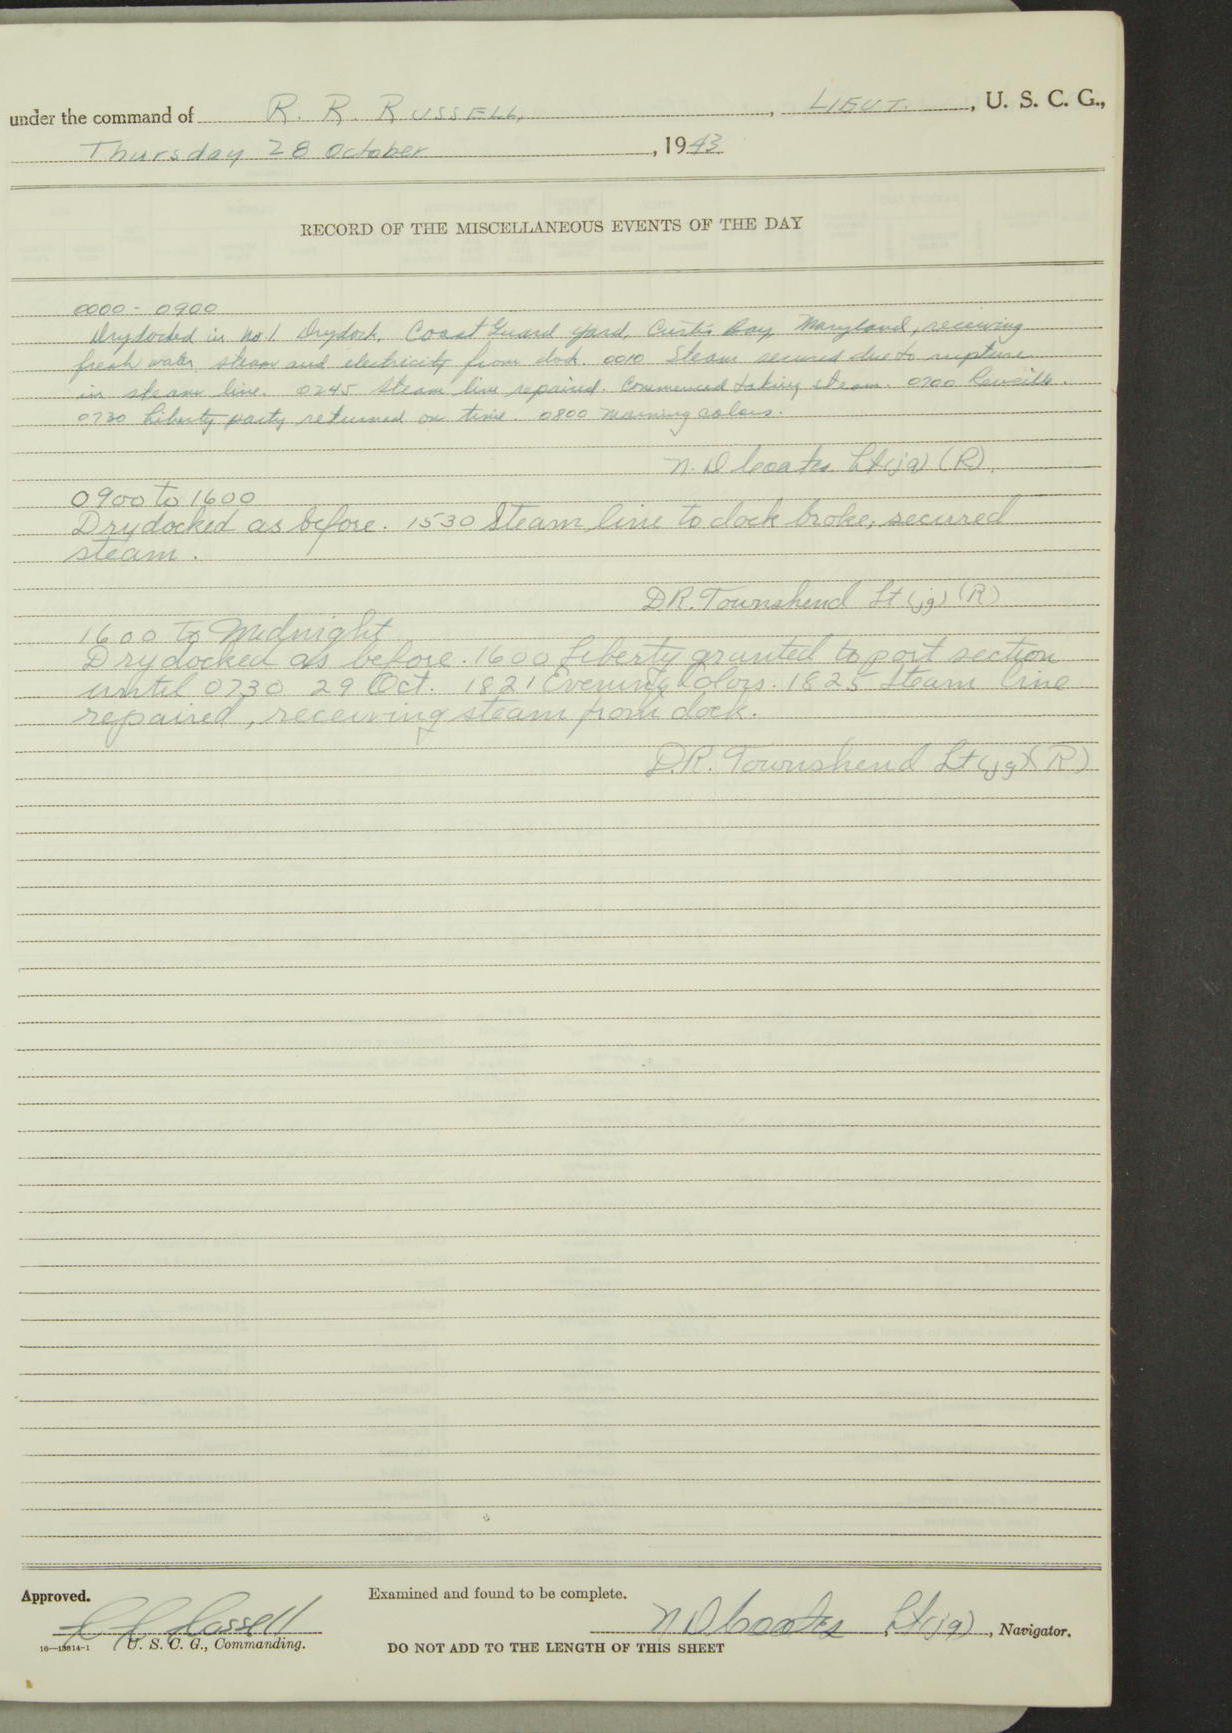 under the command of R. R. RUSSELL, , LIEUT. , U. S. C. G.,
Thursday 28 October , 1943
RECORD OF THE MISCELLANEOUS EVENTS OF THE DAY
0000 - 0900
Drydocked in No. 1 Drydock, Coast Guard Yard, Curtis Bay, Maryland, receiving
fresh water, steam and electricity from dock. 0010 Steam secured due to rupture
in steam line. 0245 steam line repaired. Commenced taking steam. 0700 Reveille.
0730 Liberty party returned on time. 0800 Morning colors.
N. D Coates Lt(jg) (R).
0900 to 1600
Drydocked as before. 1530 Steam line to dock broke, secured
steam.
D.R. Townshend Lt (jg) (R)
1600 to Midnight
Drydocked as before. 1600 Liberty granted to port section
until 0730 29 Oct. 1821 Evening Colors. 1825 Steam line
repaired, receiving steam from dock.
D.R. Townshend Lt (jg) (R)
Approved. Examined and found to be complete.
R R Russell N D Coates Lt(jg) , Navigator.
16—13814-1 U. S. C. G., Commanding. DO NOT ADD TO THE LENGTH OF THIS SHEET